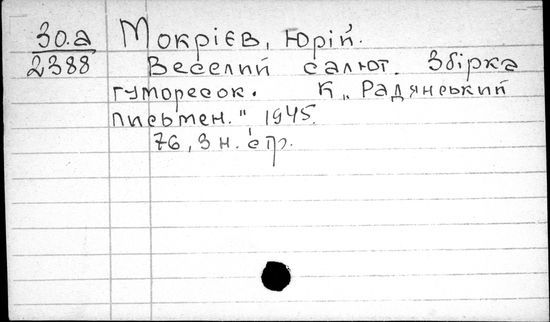 30.а Мокрієв, Юрій.
2388 Веселий салют. Збірка
гуморесок. К „Радянський
письмен." 1945.
76, 3 н. стр.